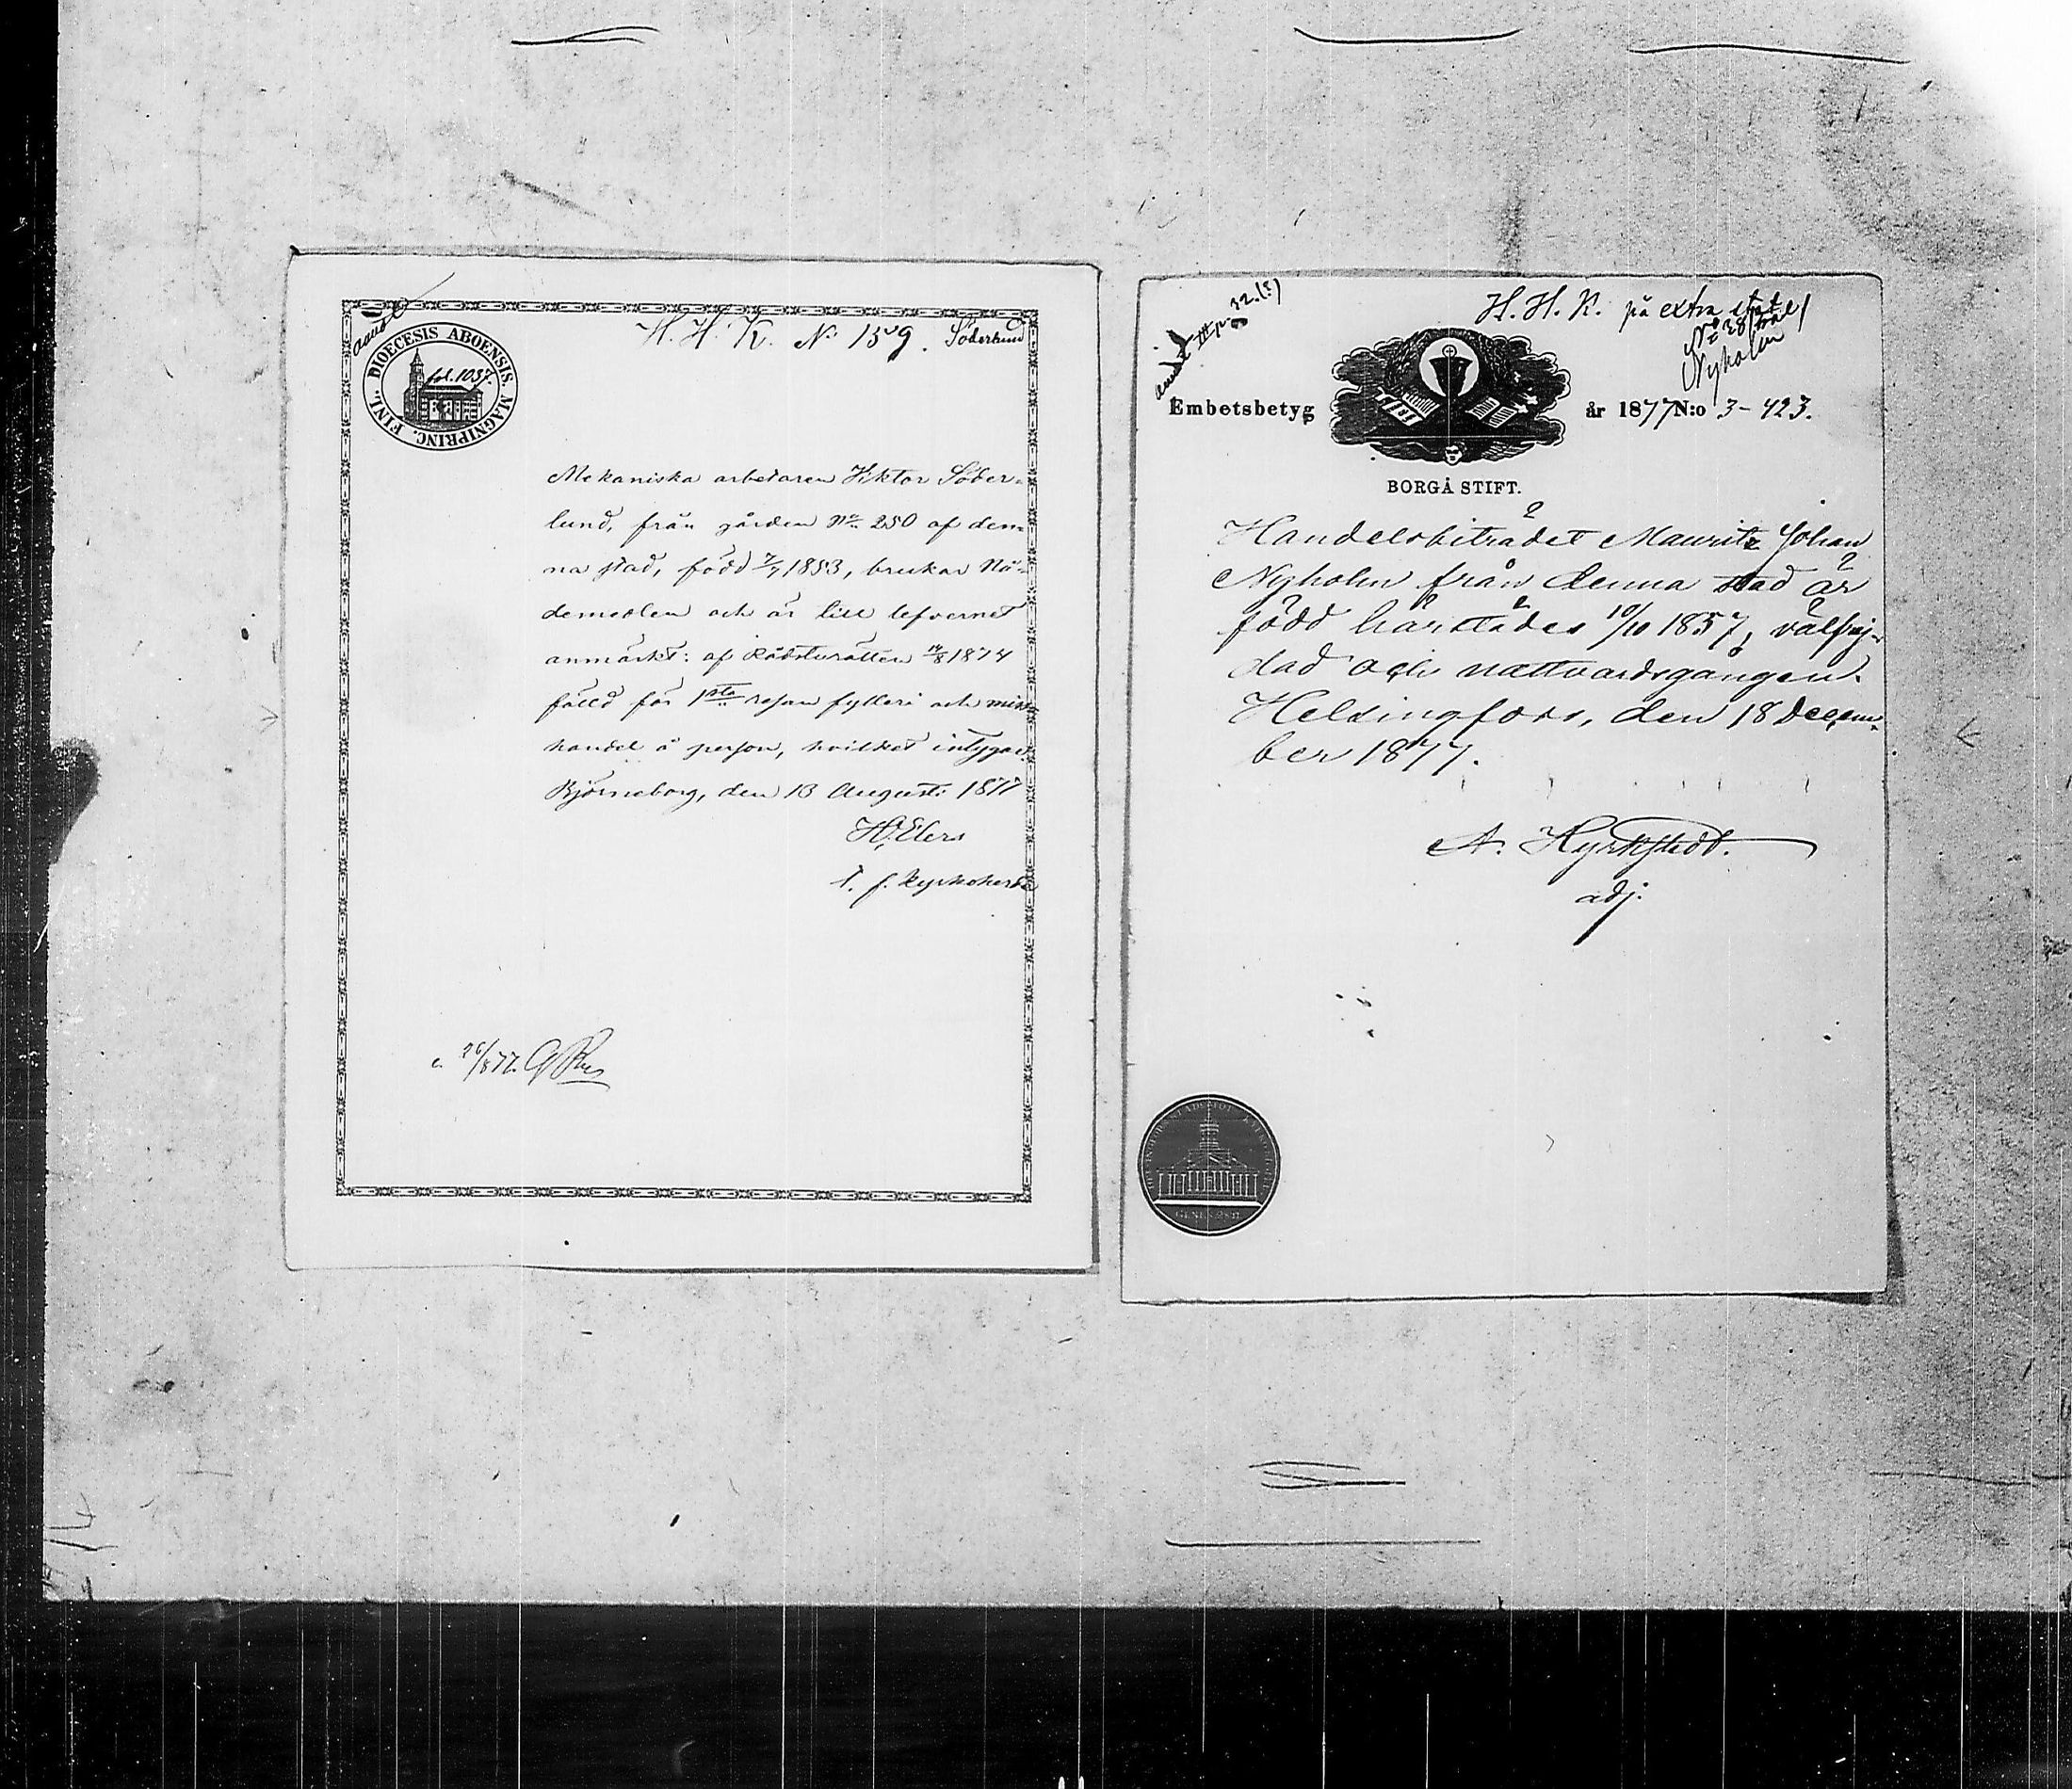 H. H. K. No 159. Söderlund
DIOECESIS ABOENSIS. MAGNIPRINC. FINL.
fol. 1037.
Mekaniska arbetaren Viktor Söder-
lund, från gården No 250 af den-
na stad, född 7/7 1853, brukar Nå-
demedlen och är till lefvernet
anmärkt: af Rådsturätten 14/8 1874
fälld för 1sta resan fylleri och miss-
handel å person, hvilket intygas
Björneborg, den 13 Augusti 1877
H. Elers
t. f. Kyrkoherde
26/8 77.
H. H. K. på extra stat
No 38
Nyholm
Embetsbetyg
år 1877 N:o 3-423.
BORGÅ STIFT.
Handelsbiträdet Mauritz Johan
Nyholm från denna stad är
född härstädes 10/10 1857, välfrej-
dad och nattvardsgången.
Helsingfors, den 18 Decem-
ber 1877.
A. Hyrkstedt.
adj.